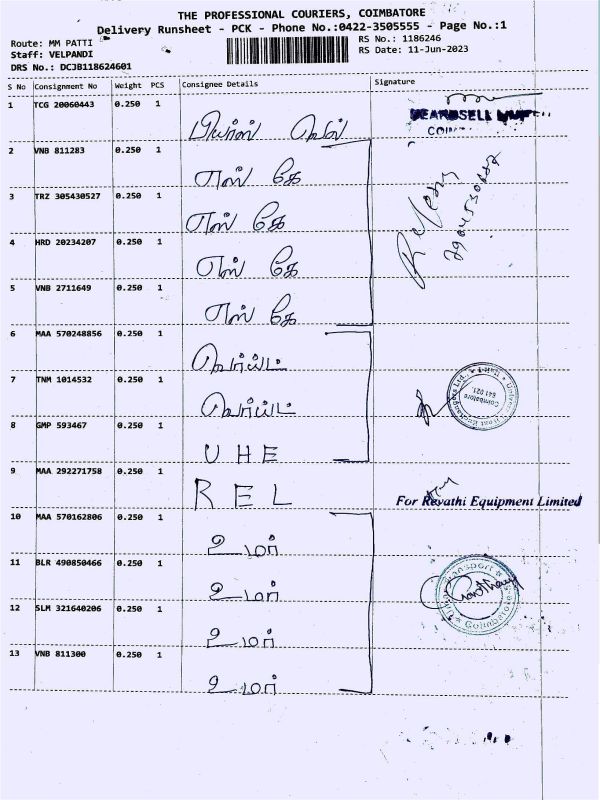 THE PROFESSIONAL COURIERS, COIMBATORE
Delivery Runsheet - PCK - Phone No.:0422-3505555 - Page No.:1
Route: MM PATTI
RS No.: 1186246
Staff: VELPANDI
RS Date: 11-Jun-2023
DRS No.: DCJB118624601
S No Consignment No Weight PCS Consignee Details Signature
1 TCG 20060443 0.250 1
2 VNB 811283 0.250 1 எஸ் கே
3 TRZ 305430527 0.250 1 எஸ் கே
4 HRD 20234207 0.250 1 எஸ் கே
5 VNB 2711649 0.250 1 எஸ் கே
6 MAA 570248856 0.250 1
7 TNM 1014532 0.250 1
8 GMP 593467 0.250 1 U H E
9 MAA 292271758 0.250 1 R E L For Revathi Equipment Limited
10 MAA 570162806 0.250 1 உமர்
11 BLR 490850466 0.250 1 உமர்
12 SLM 321640206 0.250 1 உமர்
13 VNB 811300 0.250 1 உமர்